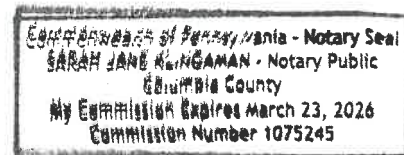 Commonwealth of Pennsylvania - Notary Seal
SARAH JANE KLINGAMAN - Notary Public
Columbia County
My Commission Expires March 23, 2026
Commission Number 1075245